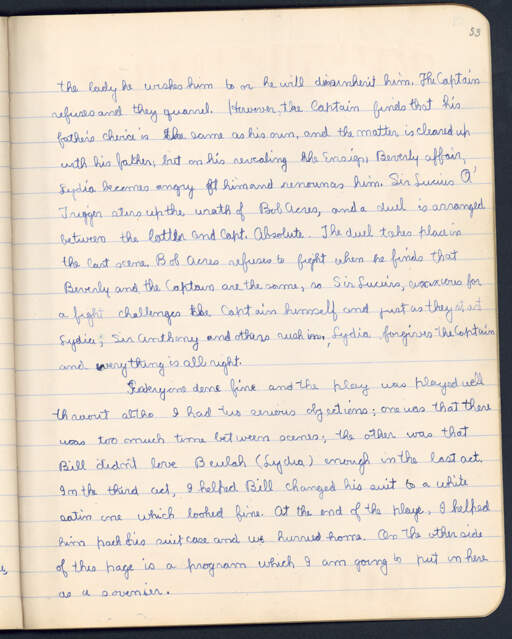 53
the lady he wishes him to or he will disinherit him. The Captain
refuses and they quarrel. However, the Captain finds that his
father's choice is the same as his own, and the matter is cleared up
with his father; but on his revealing the Ensign Beverly affair,
Lydia becomes angry at him and renounces him. Sir Lucius O'
Trigger stirs up the wrath of Bob Acres, and a duel is arranged
between the latter and Capt. Absolute. The duel takes place in
the last scene. Bob Acres refuses to fight when he finds that
Beverly and the Captain are the same, so Sir Lucius, anxious for
a fight challenges the Captain himself and just as they start
Lydia, Sir Anthony and others rush in. Lydia forgives the Captain
and everything is all right.
Everyone done fine and the play was played well
thruout altho I had two serious objections; one was that there
was too much time between scenes; the other was that
Bill didn't love Beulah (Lydia) enough in the last act.
In the third act, I helped Bill changed his suit to a white
satin one which looked fine. At the end of the playe, I helped
him pack his suit case and we hurried home. On the other side
of this page is a program which I am going to put in here
as a sovenier.